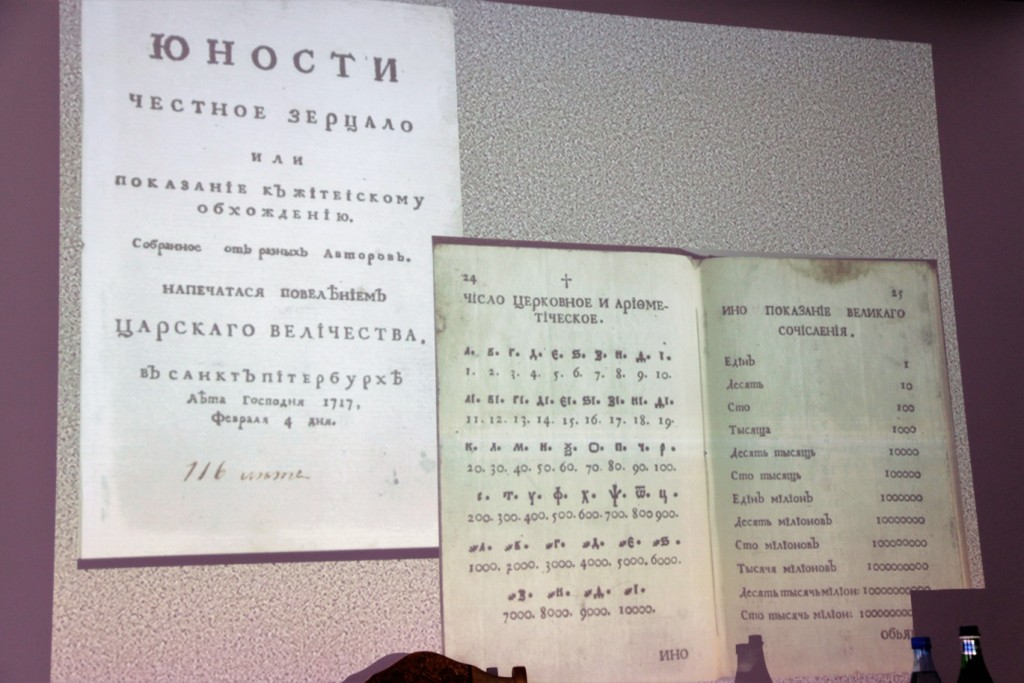 ЮНОСТИ
ЧЕСТНОЕ ЗЕРЦАЛО
ИЛИ
ПОКАЗАНІЕ КЪ ЖІТЕІСКОМУ
ОБХОЖДЕНІЮ.
Собранное отъ разныхъ Авторовъ.
НАПЕЧАТАСЯ ПОВЕЛѢНІЕМЪ
ЦАРСКАГО ВЕЛІЧЕСТВА,
ВЪ САНКТЪПІТЕРБУРХѢ
Лѣта Господня 1717,
Февраля 4 дня.
116 листа
24
ЧІСЛО ЦЕРКОВНОЕ И АРІѲМЕ-
ТІЧЕСКОЕ.
1. 2. 3. 4. 5. 6. 7. 8. 9. 10.
11. 12. 13. 14. 15. 16. 17. 18. 19.
К. Л. М. Н. Ѯ. О. П. Ч. Р.
20. 30. 40. 50. 60. 70. 80. 90. 100.
С. Т. У. Ф. Х. Ѱ. Ѿ. Ц.
200. 300. 400. 500. 600. 700. 800 900.
1000. 2000. 3000. 4000. 5000. 6000.
7000. 8000. 9000. 10000.
ИНО
25
ИНО ПОКАЗАНІЕ ВЕЛИКАГО
СОЧІСЛЕНІЯ.
Едінъ 1
Десять 10
Сто 100
Тысяща 1000
Десять тысящъ 10000
Сто тысящъ 100000
Едінъ міліонъ 1000000
Десять міліоновъ 10000000
Сто міліоновъ 100000000
Тысячя міліоновъ 1000000000
Десять тысячь міліон:
Сто тысячь міліон: